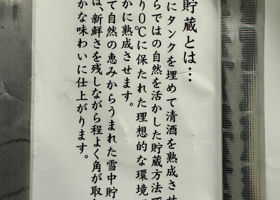 貯蔵とは…
にタンクを埋めて清酒を熟成させ
らではの自然を活かした貯蔵方法で
り0℃に保たれた理想的な環境
かに熟成させます。
て自然の恵みからうまれた雪中貯
は、新鮮さを残しながら程よく角が取
かな味わいに仕上がります。